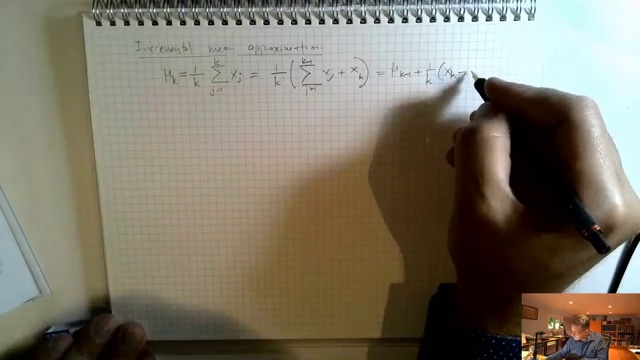 Incremental mean approximation:
μ_k = 1/k ∑_{j=1}^{k} x_j = 1/k ( ∑_{j=1}^{k-1} x_j + x_k ) = μ_{k-1} + 1/k (x_k -